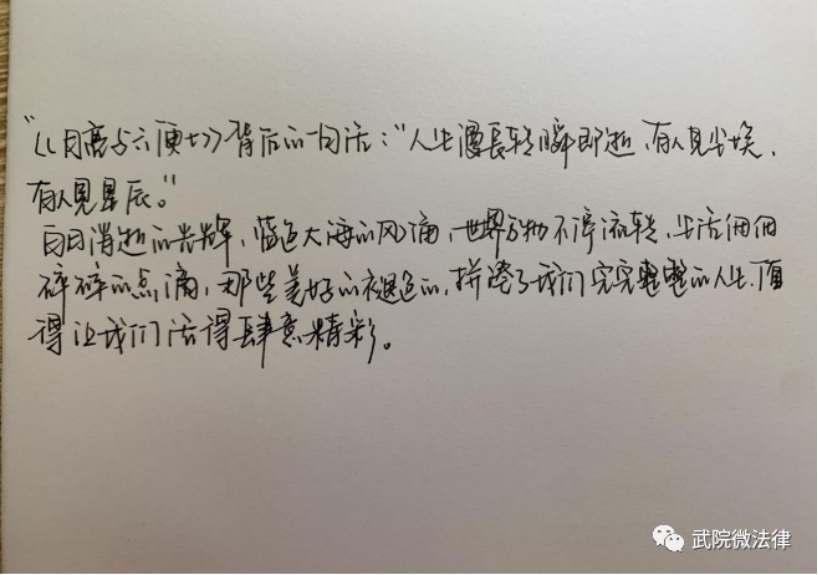 "《月亮与六便士》背后的一句话："人生漫長转瞬即逝,有人見尘埃,
有人見星辰。"
白日消逝的光辉,蓝色大海的风涌,世界万物不停流转,生活细细
碎碎的点滴,那些美好的褪色的,拼凑了我们完完整整的人生,值
得让我们活得肆意精彩。
武院微法律